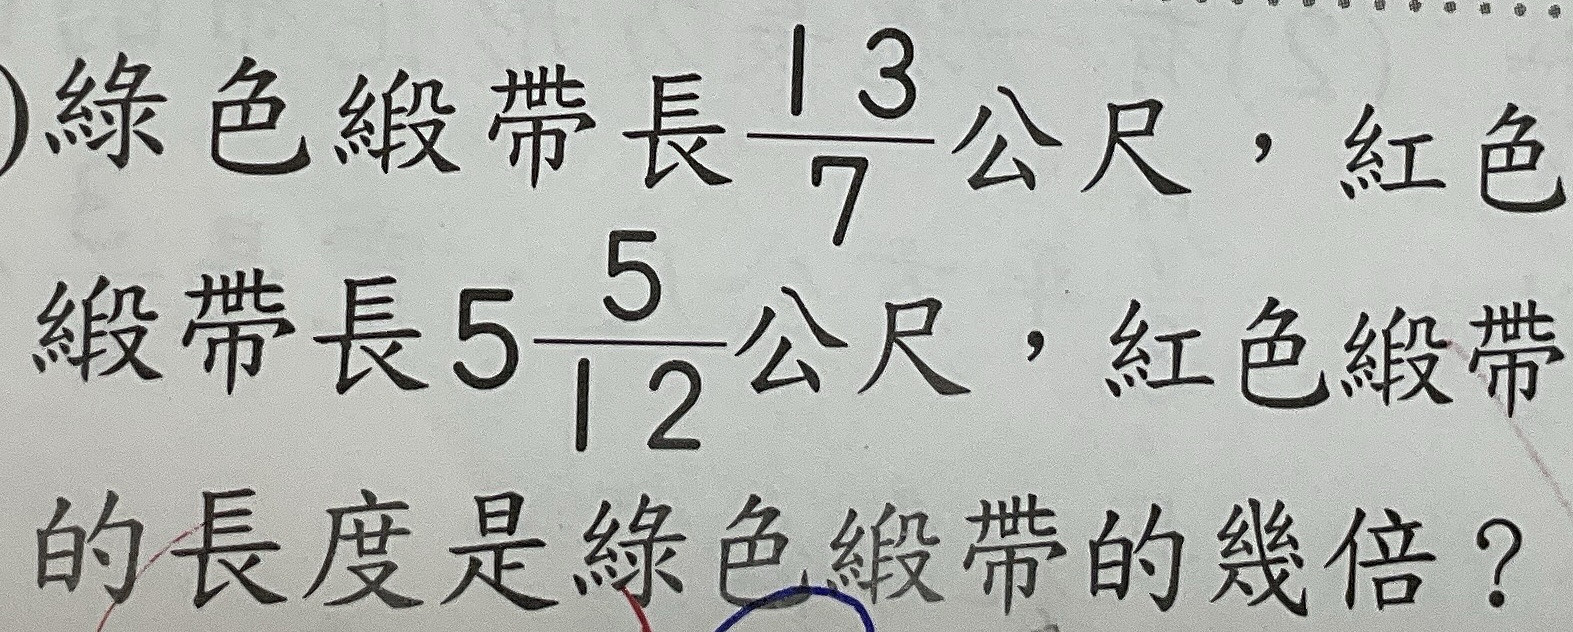 )綠色緞帶長13/7公尺，紅色
緞帶長5 5/12公尺，紅色緞帶
的長度是綠色緞帶的幾倍？